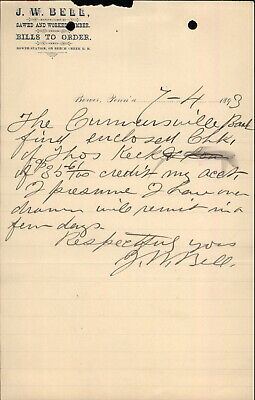 J. W. BELL,
SAWED AND WORKED LUMBER.
BILLS TO ORDER.
BOWER STATION, ON BEECH CREEK R. R.
Bower, Penn'a 7-4 1893
The Curwensville Bank
find enclosed Chk,
of Thos Keck & Son
of $35 to credit my acct.
I presume I have over
drawn will remit in a
few days.
Respectfully yours
J. W. Bell.